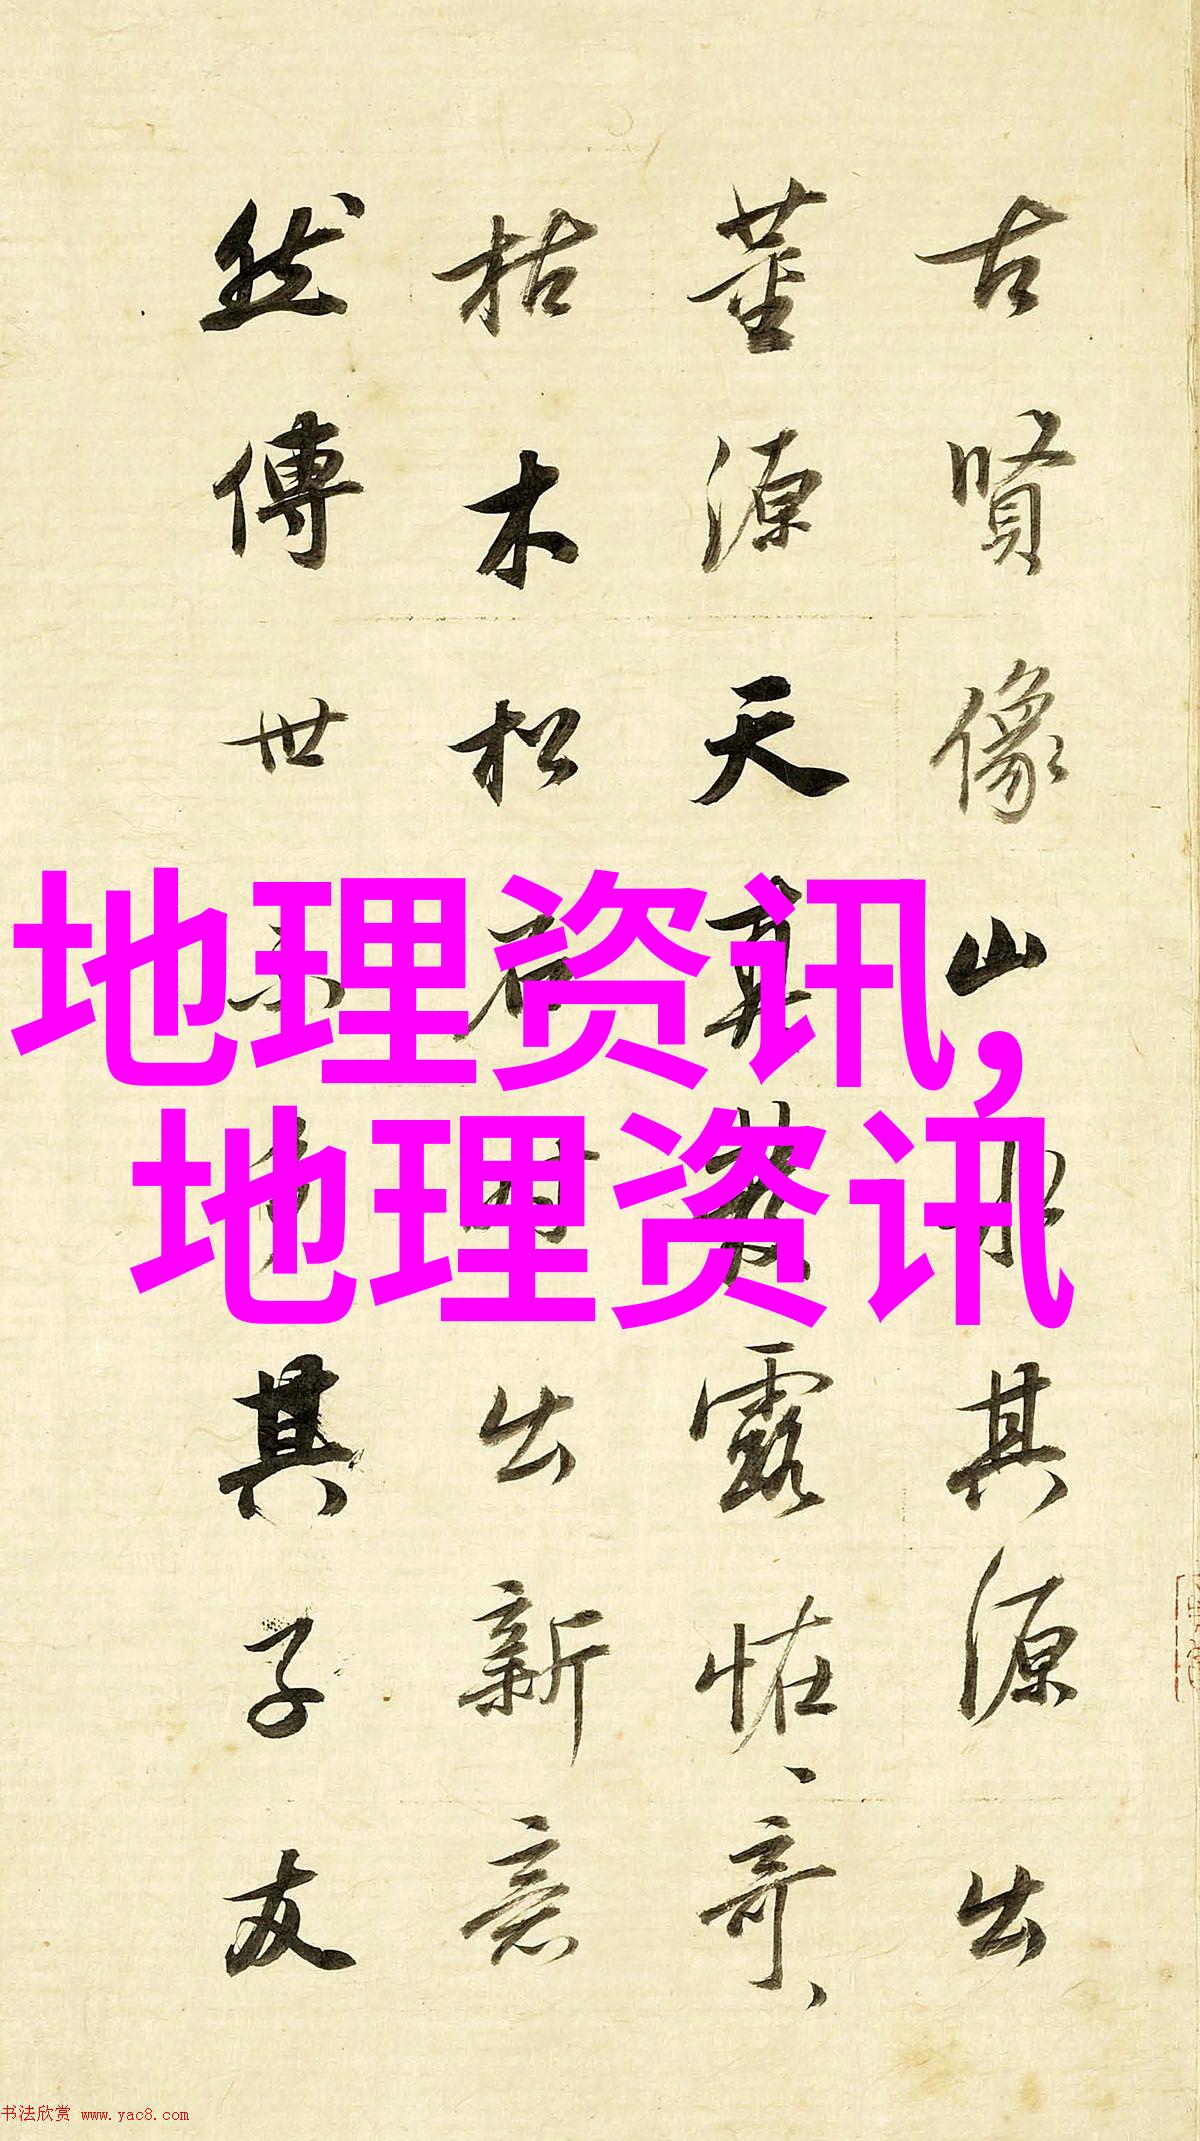 古賢像山水其源出
董源天真發露恠、奇、
枯木松石時出新意
然傳世不多其子友
地理资讯,
地理资讯
书法欣赏 www.yac8.com